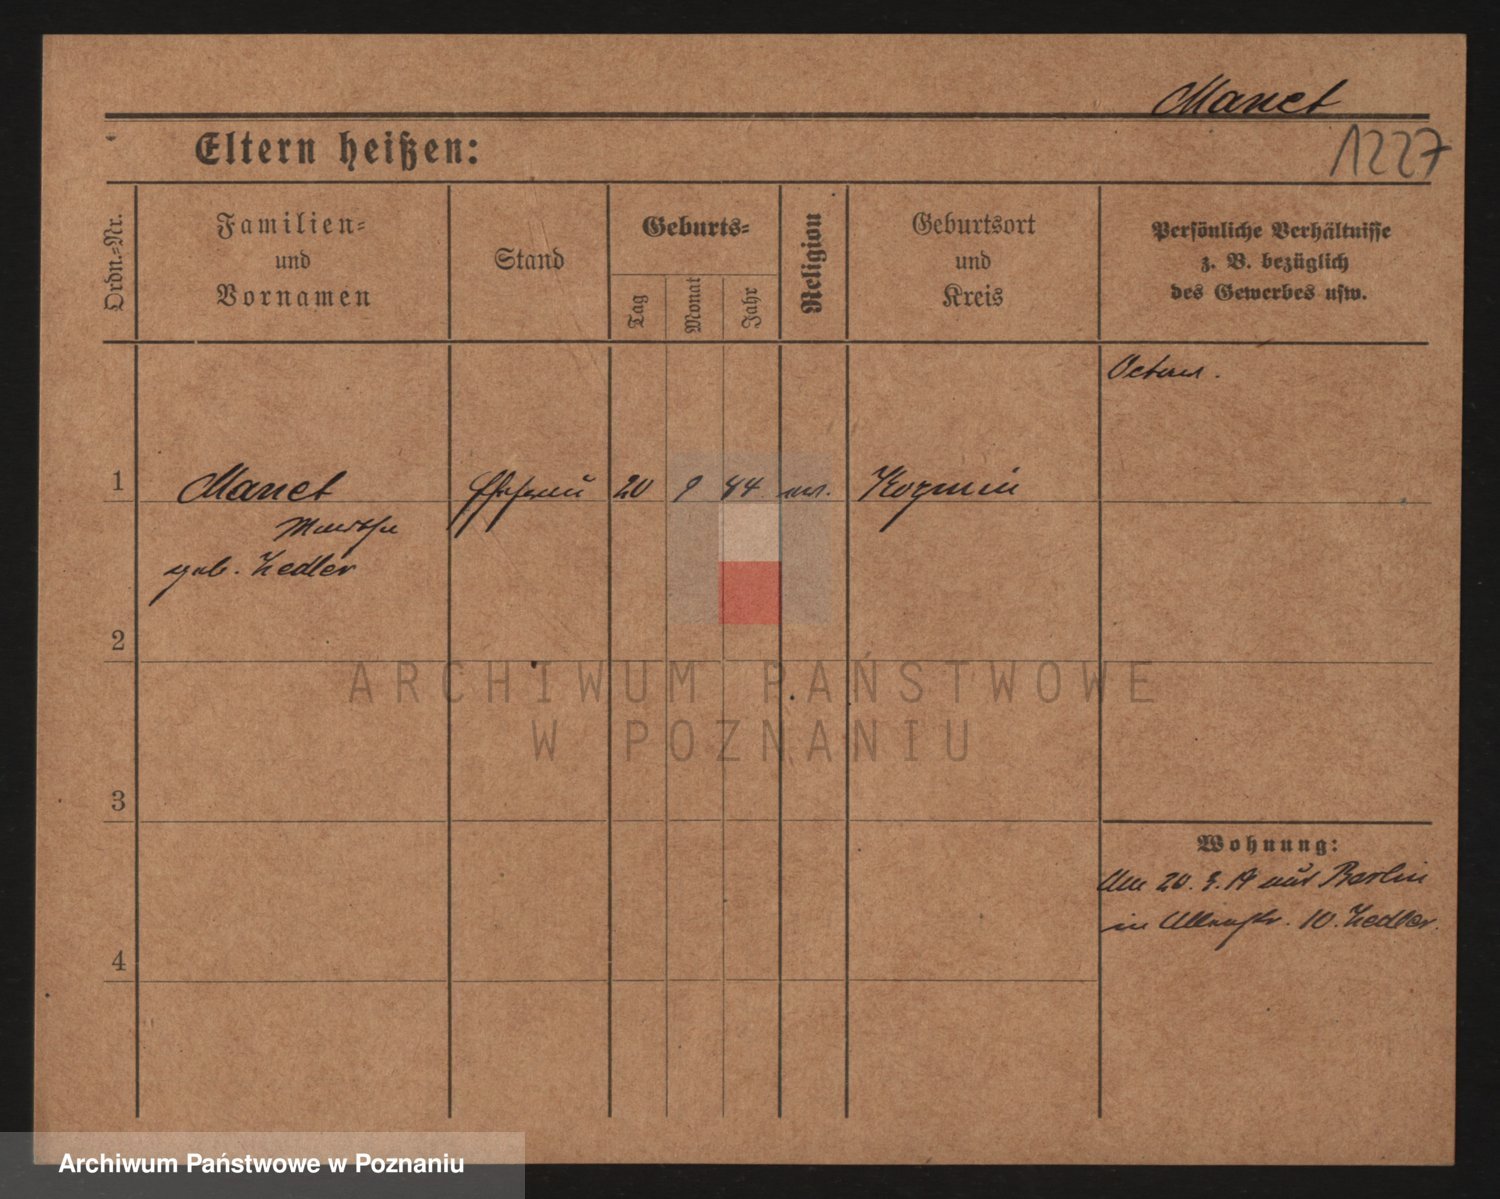 Manet
1227
Eltern heißen:
Ordn.-Nr.
Familien-
und
Vornamen
Stand
Geburts-
Tag
Monat
Jahr
Religion
Geburtsort
und
Kreis
Persönliche Verhältnisse
z. B. bezüglich
des Gewerbes usw.
1
Manet
Ehefrau
20
9
84
Kozmin
Martha
geb. Zedler
2
ARCHIWUM PAŃSTWOWE
W POZNANIU
3
Wohnung:
Am 20. 3. 19 aus Berlin
in 10. Zedler.
4
Archiwum Państwowe w Poznaniu